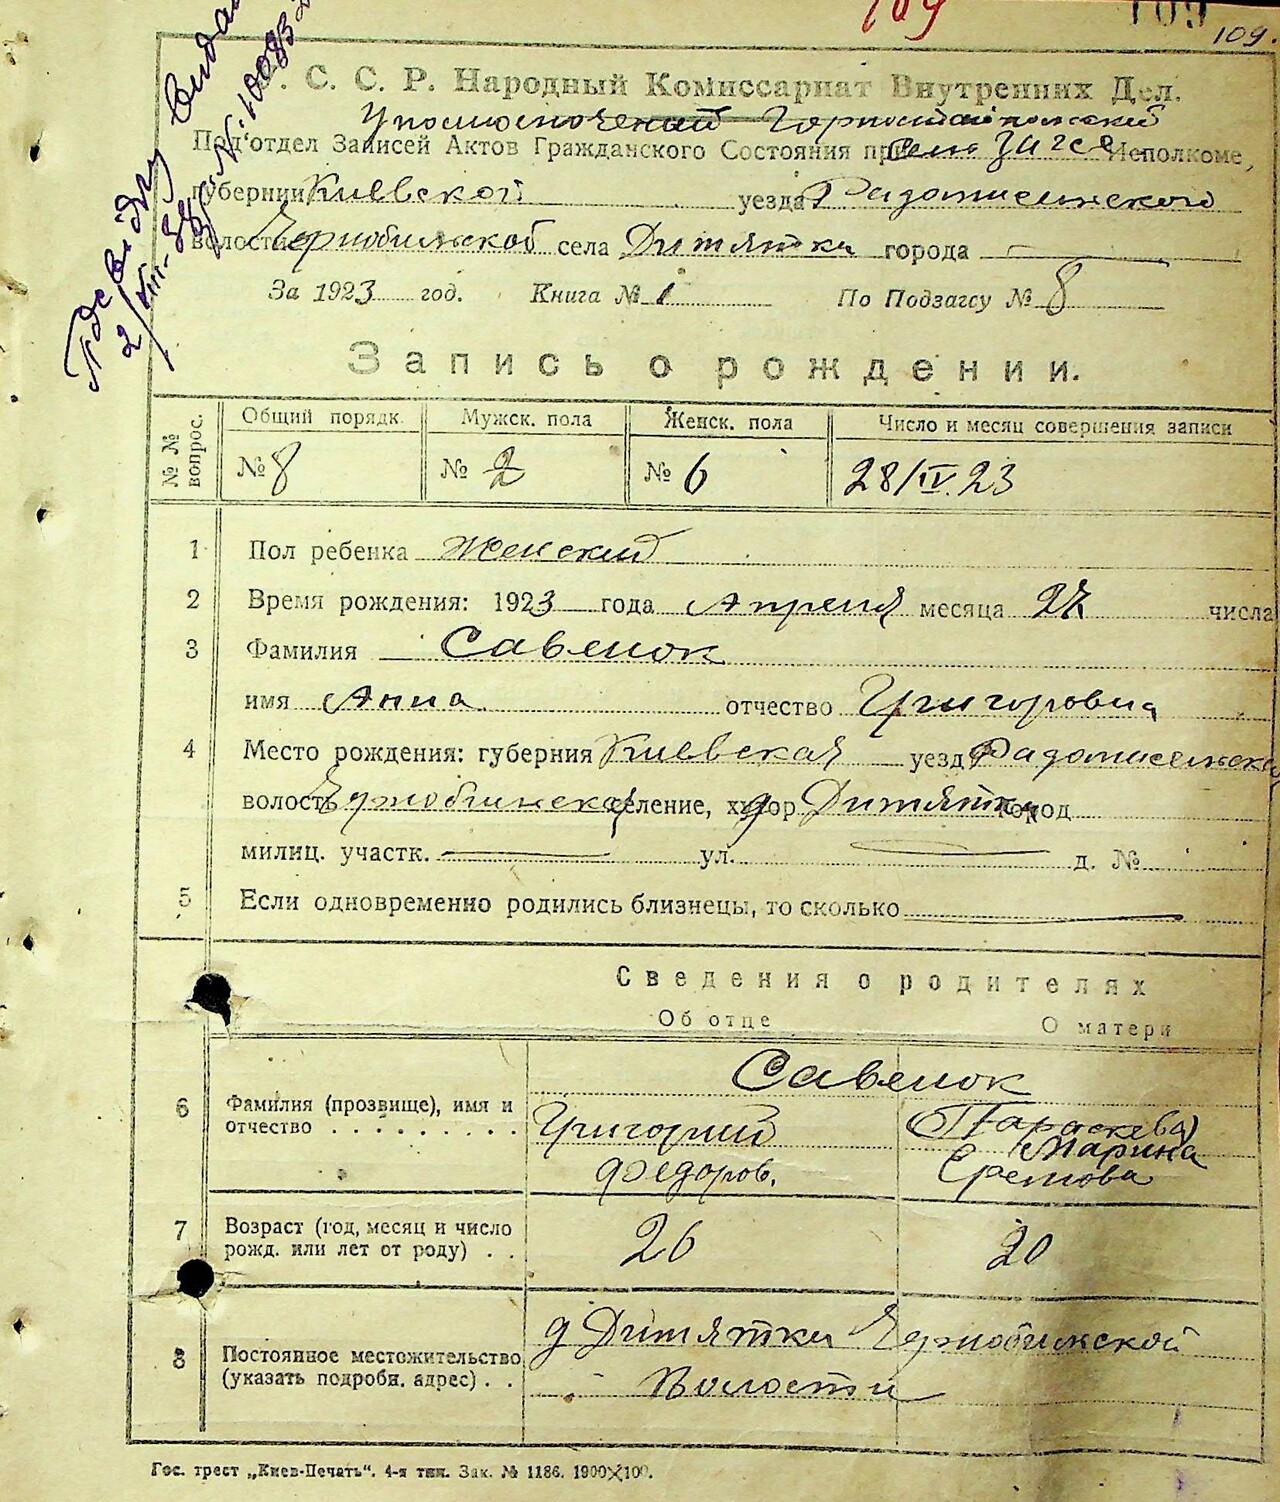 109
109
109.
Видан
№ 10083
2/VIII-39
. С. С. Р. Народный Комиссариат Внутренних Дел.
Уполномоченый Горностайпольский
Под'отдел Записей Актов Гражданского Состояния при Исполкоме,
губернии Киевской уезда Радомисельского
волости Чернобильской села Дитятки города
За 1923 год. Книга № 1 По Подзагсу № 8
Запись о рождении.
№ № вопрос.
Общий порядк. Мужск. пола Женск. пола Число и месяц совершения записи
№ 8 № 2 № 6 28/IV.23
1 Пол ребенка Женский
2 Время рождения: 1923 года Апреля месяца 27 числа
3 Фамилия Савенок
имя Анна отчество Григоровна
4 Место рождения: губерния Киевская уезд Радомисельск
волость Чернобильская селение, хутор д Дитятки город
милиц. участк. ул. д. №
5 Если одновременно родились близнецы, то сколько
Сведения о родителях
Об отце О матери
Савенок
6 Фамилия (прозвище), имя и отчество . . . . . . . . .
Григорий (Параскева)
Марина
Федоров.
7 Возраст (год, месяц и число рожд. или лет от роду) . . 26 20
8 Постоянное местожительство (указать подробн. адрес) . .
д Дитятки Чернобилской
Волости
Гос. трест „Киев-Печать“. 4-я тип. Зак. № 1186. 1900X100.